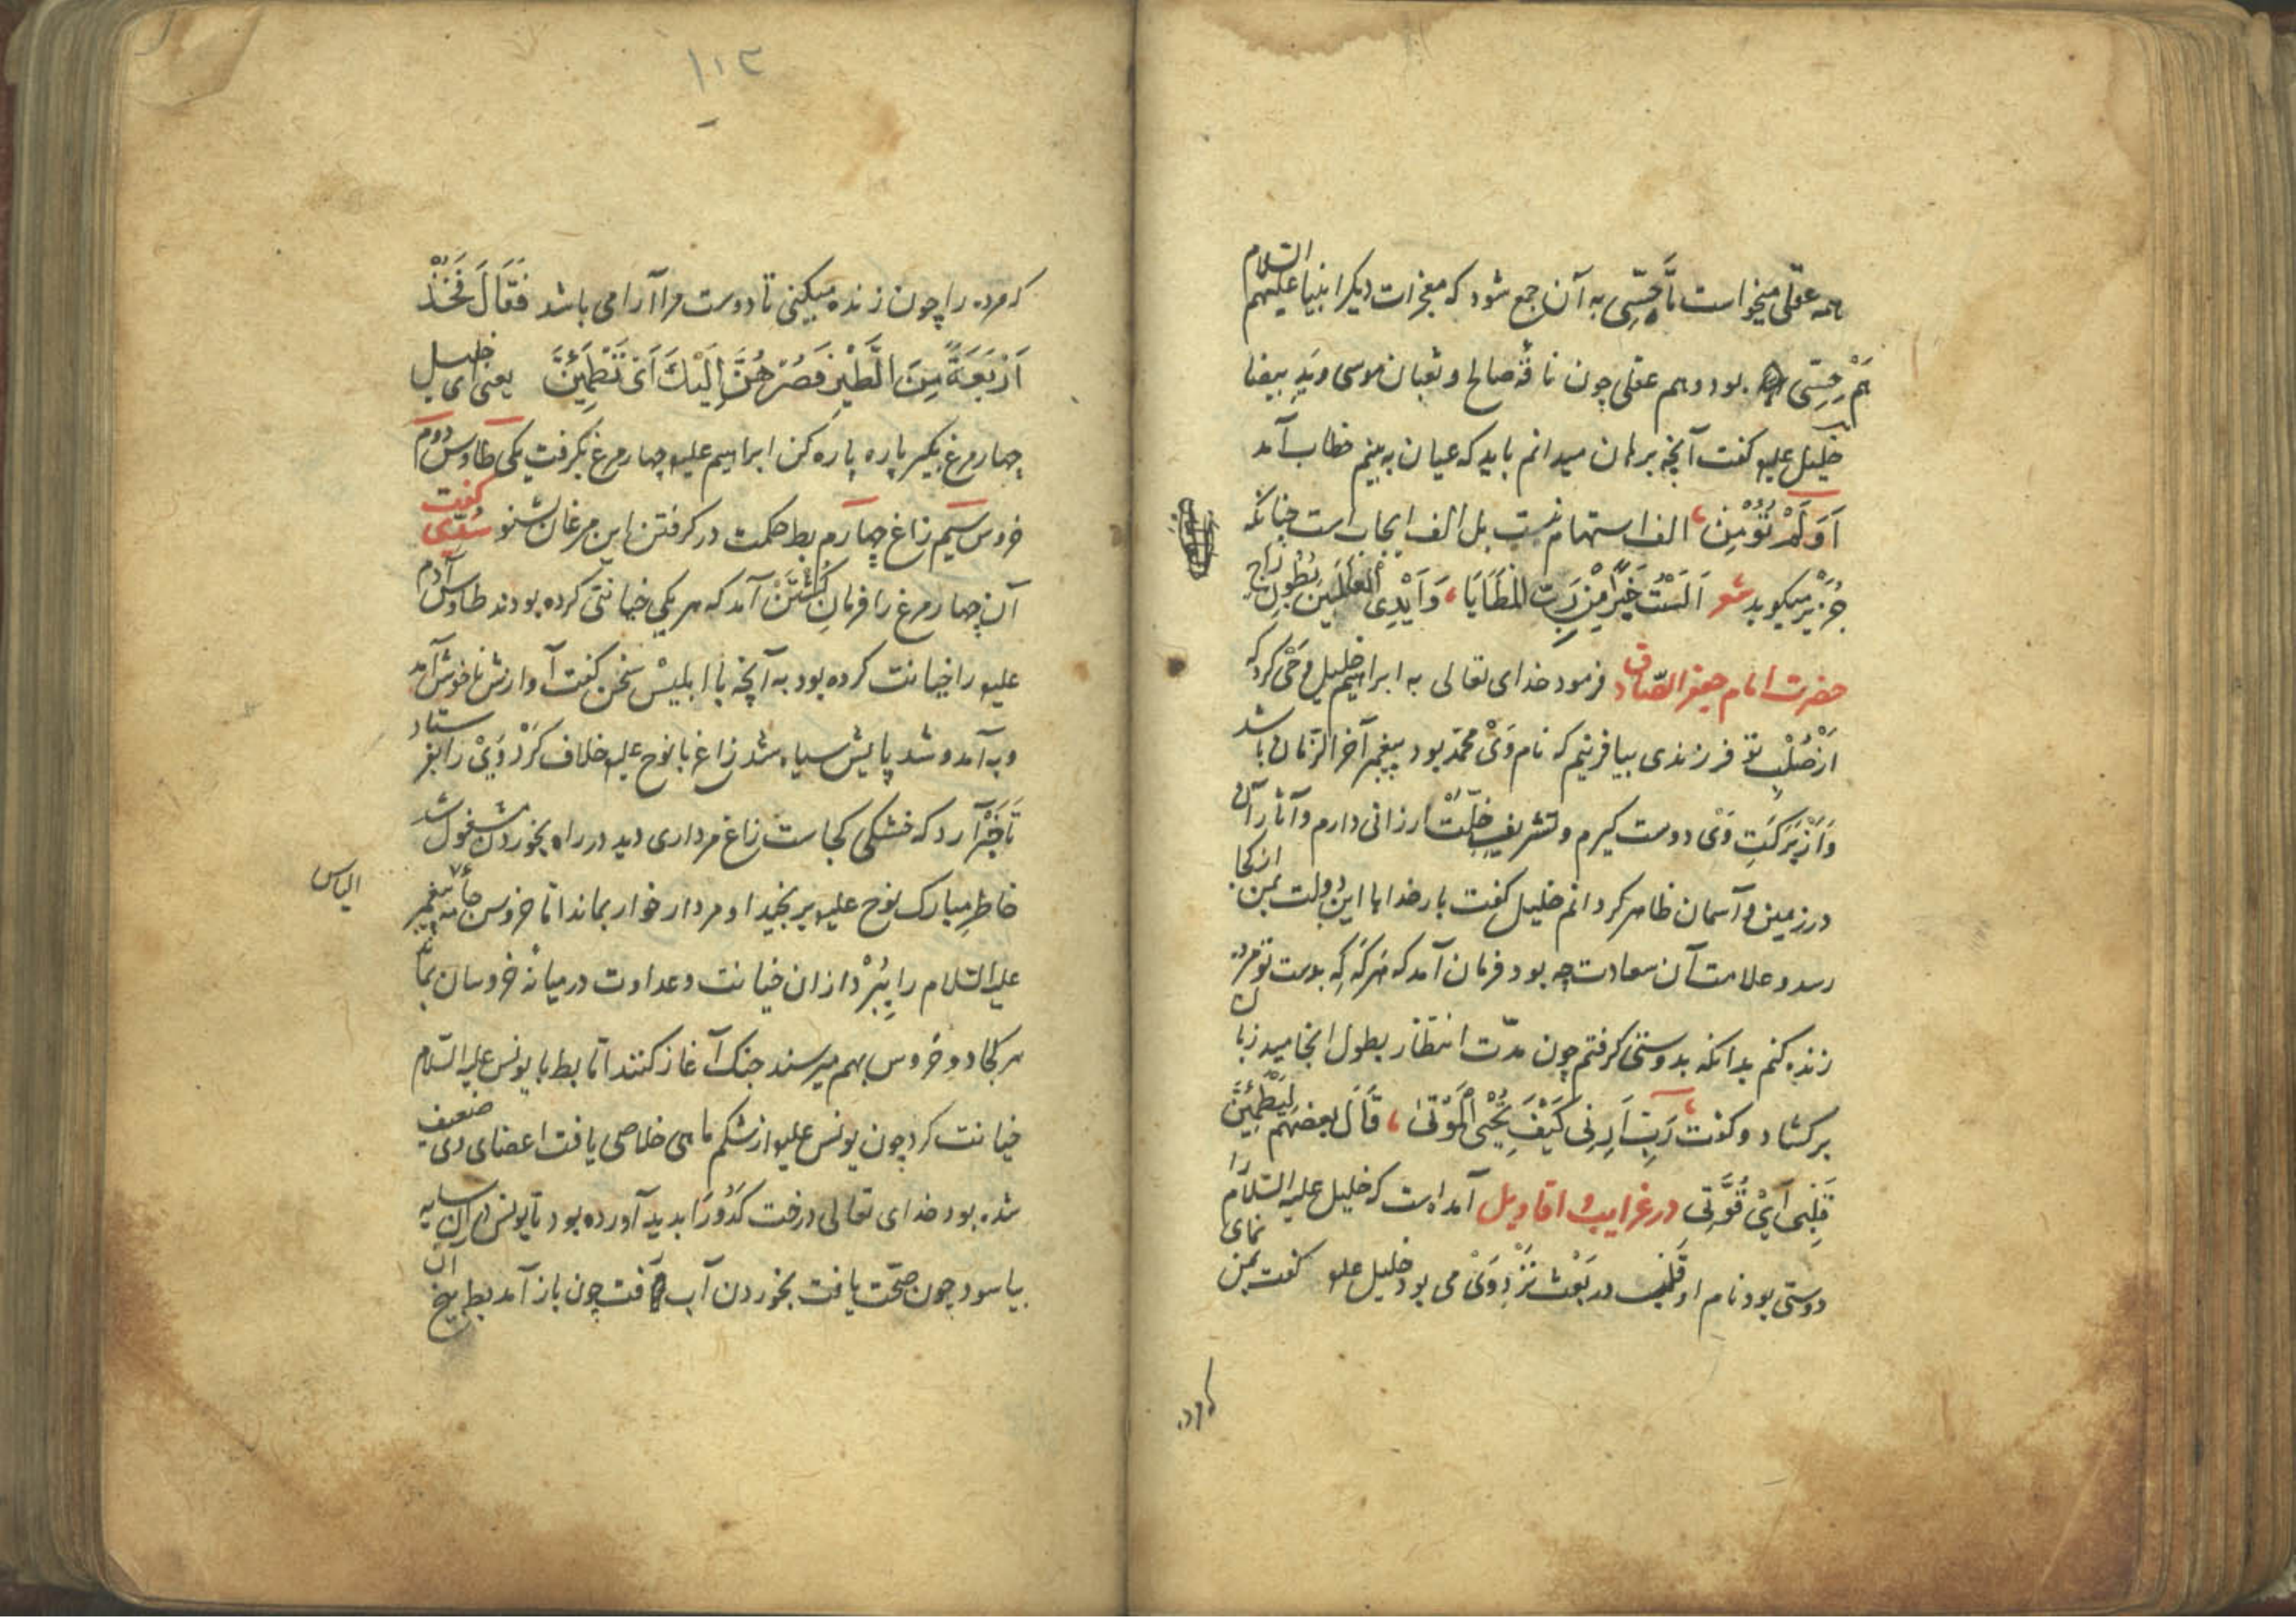 همه عقلی میخواست تا حسّی به آن جمع شود که معجزات دیگر انبیا علیهم السّلام
هم حسّی بود و هم عقلی چون ناقهٔ صالح و ثعبان موسی و ید بیضا
خلیل علیه گفت آنچه برهان میدانم باید که عیان به بینم خطاب آمد
اَوَلَمْ تُؤْمِنْ الف استفهام نیست بل الف ایجاب است چنانکه
جُرَیْر میکوید شعر اَلَسْتُ خَیْرٌ مِنْ رَبِّ المَطَایَا وَ اَیْدِی العٰلَمِینَ بُطُونِ رَاحِ
حضرت امام جعفر الصّادق فرمود خدای تعالی به ابراهیم خلیل وحی کرد که
از صُلْبِ تو فرزندی بیافرینم که نام وَیْ محمّد بود پیغمبر آخر الزّمان باشد
وَ اَزْ بَرَکَتِ وَی دوست کیرم و تشریفِ خلّتْ ارزانی دارم و آثار آن
در زمین و آسمان ظاهر کردانم خلیل کفت بار خدایا این دولت بمن از کجا
رسد و علامت آن سعادت چه بود فرمان آمد که هرکه که بدست تو مرده
زنده کنم بدانکه بدوستی کرفتم چون مدّت انتظار بطول انجامید زبان
برکشاد و کفت رَبِّ اَرِنِی کَیْفَ تُحْیِی الْمَوْتیٰ قَالَ بعضهم لِیَطْمَئِنَّ
قَلْبِی اَیْ قُوَّتِی در غرایب و اقاویل آمده است که خلیل علیه السّلام را
دوستی بود نام او قلب در بَعْث نَزْدِ وَیْ می بود خلیل علیه کفت بمن نمای
۱۱۲
که مرده را چون زنده میکنی تا دوست مرا آرامی باشد فَقَالَ فَخُذْ
اَرْبَعَةً مِنَ الطَّیْرِ فَصُرْهُنَّ اِلَیْكَ اَیْ تَطْمَئِنَّ یعنی ای خلیل
چهار مرغ بکیر پاره پاره کن ابراهیم علیه چهار مرغ بکرفت یکی طاوس دوم
خروس سیم زاغ چهارم بط حکمت در کرفتن این مرغان بشنو سُدّی کفت
آن چهار مرغ را فرمانِ کُشْتَنْ آمد که هر یکی خیانتی کرده بودند طاوس آدم
علیه را خیانت کرده بود به آنچه با ابلیسْ سخن کفت آوازش ناخوش آمد
و به آمد و شد پایش سیاه شد زاغ با نوح علیه خلاف کَرْد وَیْ را بفرستاد
تَا خَبَرْ آرد که خشکی کجاست زاغ مرداری دید در راه بخوردن مشغول شد
خاطرِ مبارک نوح علیه برنجید او مردار خوار بماند اما خروس جامهٔ پیغمبر
علیه السّلام را بِبُرْد از ان خیانت و عداوت در میانهٔ خروسان بماند
هر کجا دو خروس بهم میرسند جنک آغاز کنند امّا بط با یونس علیه السّلام
خیانت کرد چون یونس علیه از شکم ماهی خلاصی یافت اعضای وی ضعیف
شده بود خدای تعالی درخت کَدُو رَا بدید آورده بود تا یونس در ان سایه
بیاسود چون صحّت یافت بخوردن آب رفت چون باز آمد بط بیخ آن
الیاس